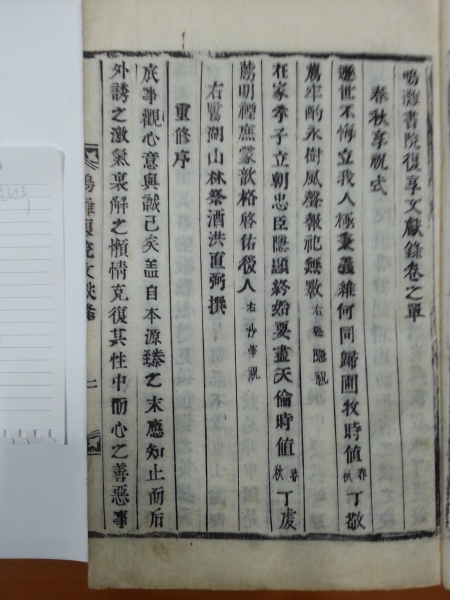 鳴灘書院復享文獻錄卷之單
春秋享祝式
遯世不悔立我人極秉義維何同歸圃牧時値春秋丁敬
薦牢酌永樹風聲報祀無斁右松隱祝
在家孝子立朝忠臣隱顯終始要盡天倫時値春秋丁虔
薦明禋庶蒙歆格啓佑後人右沙峯祝
右鷺湖山林祭酒洪直弼撰
重修序
底事觀心意與誠己矣盖自本源臻之末應知止而后
外誘之激氣裏解之懶情克復其性中而心之善惡事
鳴灘復院文獻 二